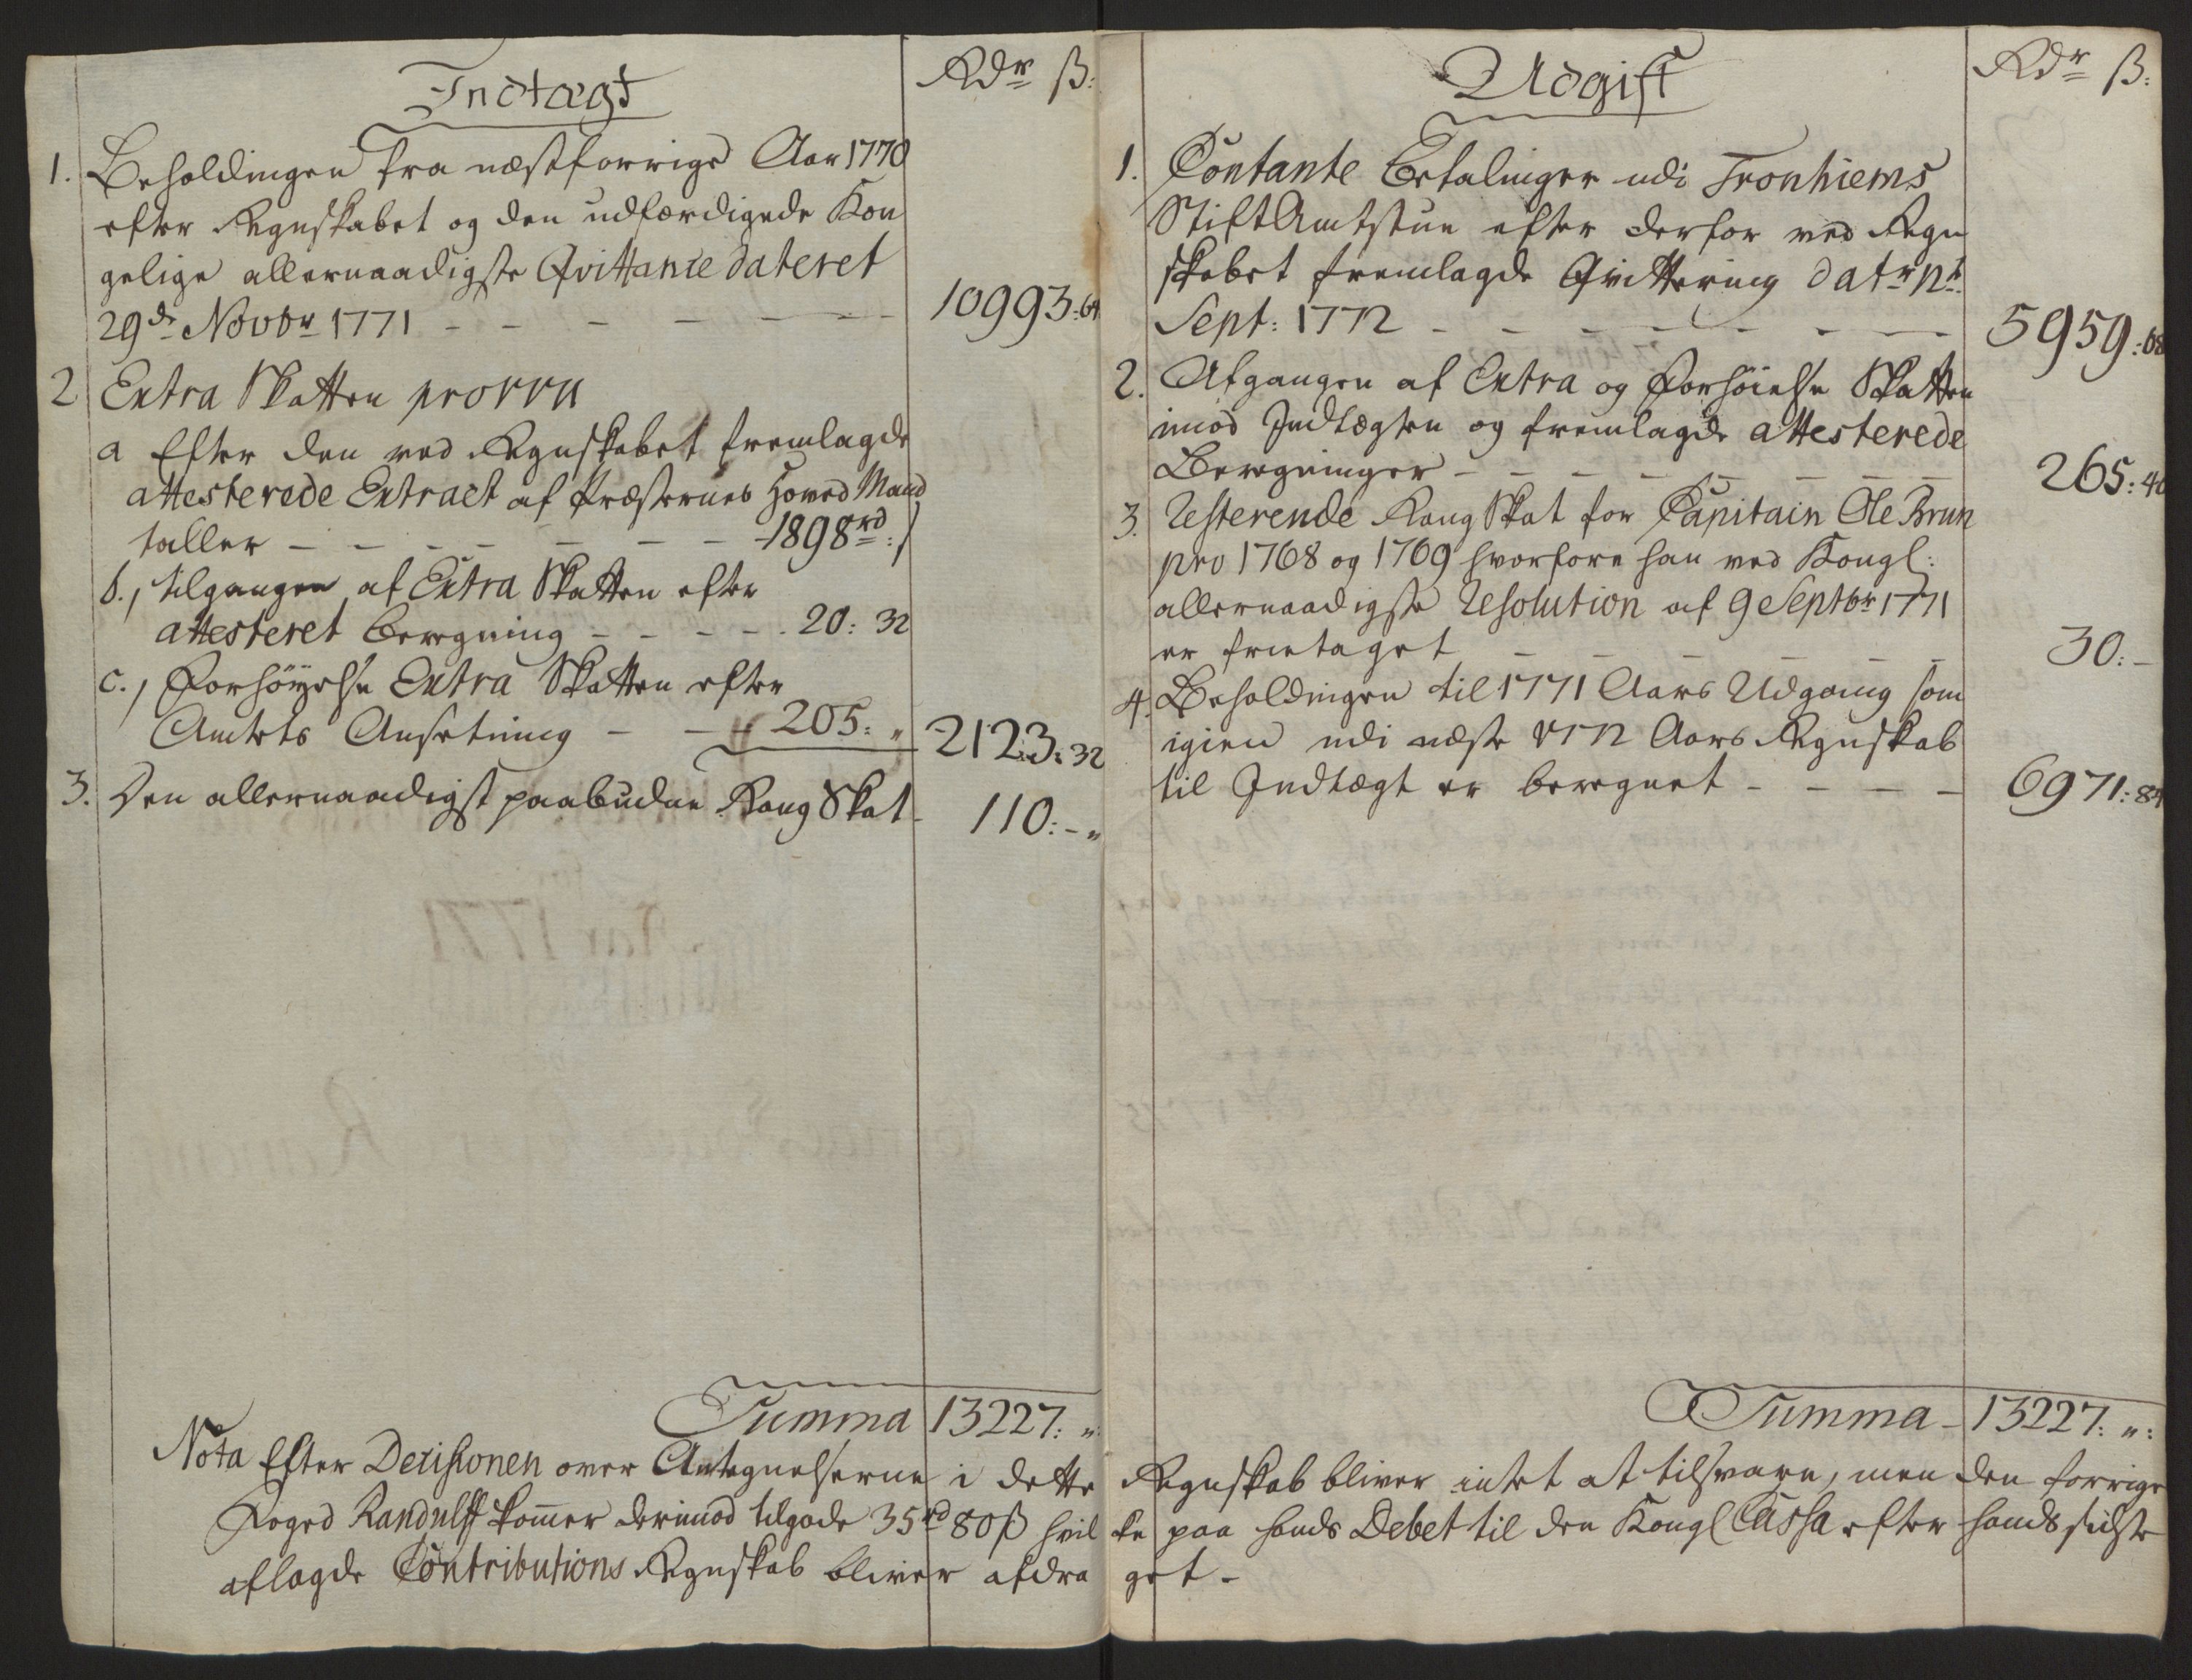 Indtægt
Rdr ß:
1. Beholdingen fra næstforrige Aar 1770
efter Regnskabet og den udfærdigede Kon
gelige allernaadigste Qvittance dateret
29de Novbr 1771 - - - - - - 10993: 64
2 Extra Skatten pro 1771
a Efter den ved Regnskabet fremlagde
attesterede Extract af Præsternes Hoved Mand
taller - - - - - - - 1898rd:
b., tilgangen af Extra Skatten efter
attesteret Beregning - - - - 20: 32
c., Forhöyelse Extra Skatten efter
Amtets Ansetning - - 205: „ 2123: 32
3. Den allernaadigst paabudne Rang Skat - 110: - „
Summa 13227: „:
Nota Efter Decisionen over Antegnelserne i dette
Foged Randulff kommer derimod tilgode 35rd 80ß hvil
aflagde Contributions Regnskab bliver afdra
Udgift
Rdr ß:
1. Contante Betalinger udi Tronhiems
StiftAmtstue efter derfor ved Regn
skabet fremlagde Qvittering datr
Sept: 1772 - - - - - - - 5959: 68
2. Afgangen af Extra og Forhöielse Skatten
imod Indtægten og fremlagde attesterede
Beregninger - - - - - - - 265: 40
3. Resterende Rang Skat for Capitain Ole Brun
pro 1768 og 1769 hvorfore han ved Kongl:
allernaadigste Resolution af 9 Septbr 1771
er frietaget - - - - - 30: -
4. Beholdningen til 1771 Aars Udgang som
igien udi næste 1772 Aars Regnskab
til Indtægt er beregnet - - - - 6971: 84
Summa - 13227: „:
Regnskab bliver intet at tilsvare, men den forrige
ke paa hands Debet til den Kongl Cassa efter hands sidste
get -